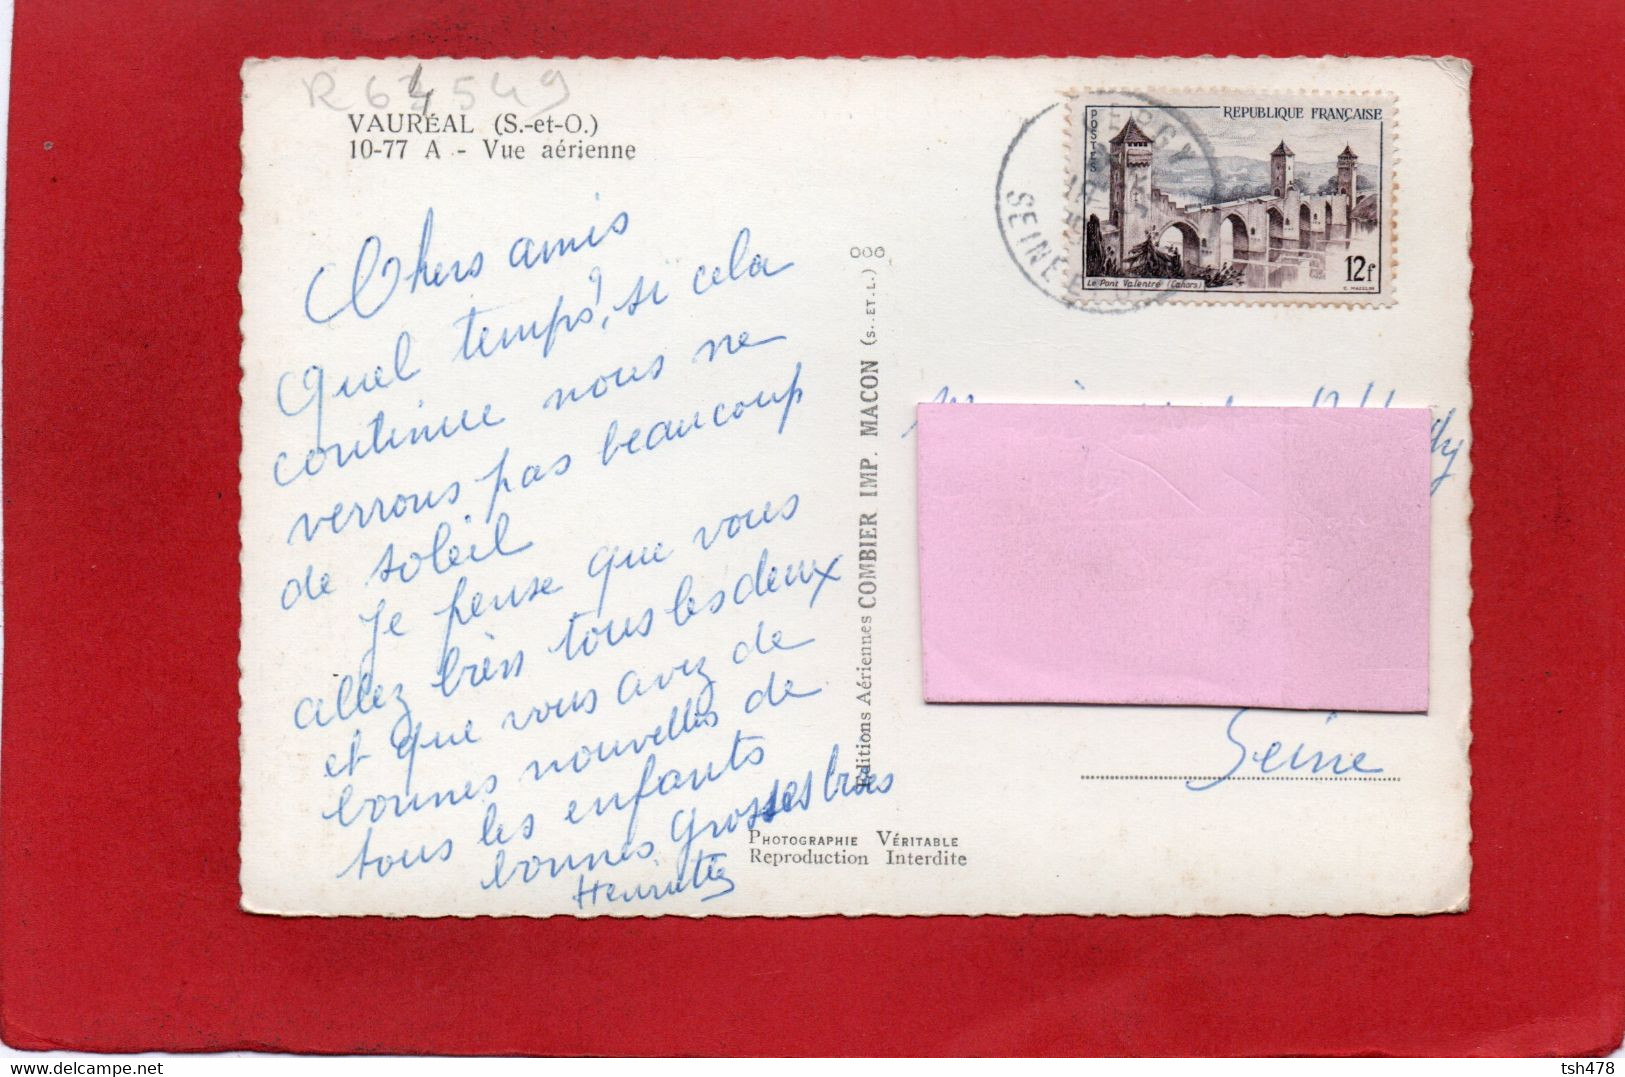 R 64549
VAURÉAL (S.-et-O.)
10-77 A - Vue aérienne
Chers amis
Quel temps, si cela
continue nous ne
verrons pas beaucoup
de soleil
Je pense que vous
allez bien tous les deux
et que vous avez de
bonnes nouvelles de
tous les enfants
bonnes grosses bises
Henriette
Editions Aériennes COMBIER IMP. MACON (S.-ET-L.)
PHOTOGRAPHIE VÉRITABLE
Reproduction Interdite
CERGY
SEINE-ET-O
REPUBLIQUE FRANÇAISE
POSTES
12f
Le Pont Valentré (Cahors)
C. MAZELIN
Seine
Delcampe.net
tsh478